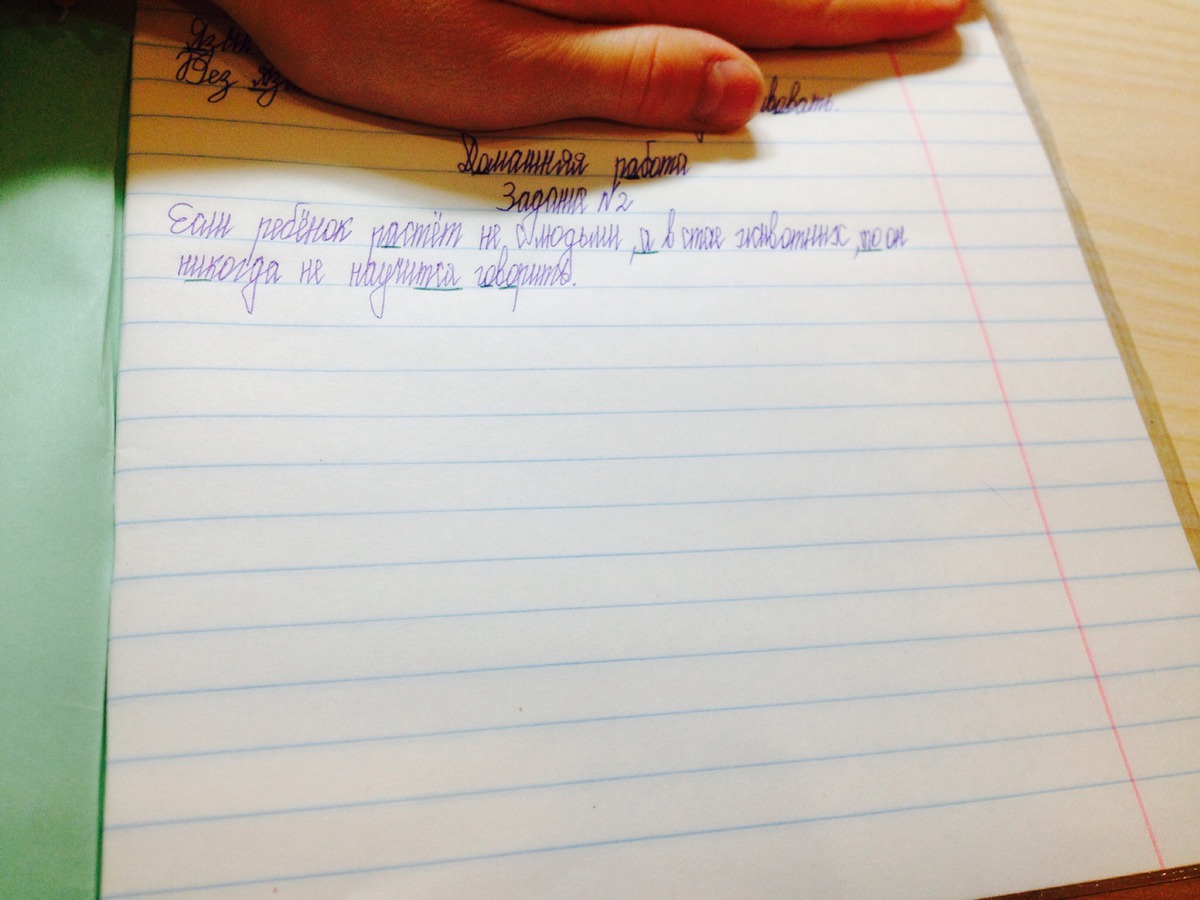 Без
вать.
Домашняя работа
Задание №2
Если ребёнок растёт не с людьми, а в стае животных, то он
никогда не научится говорить.